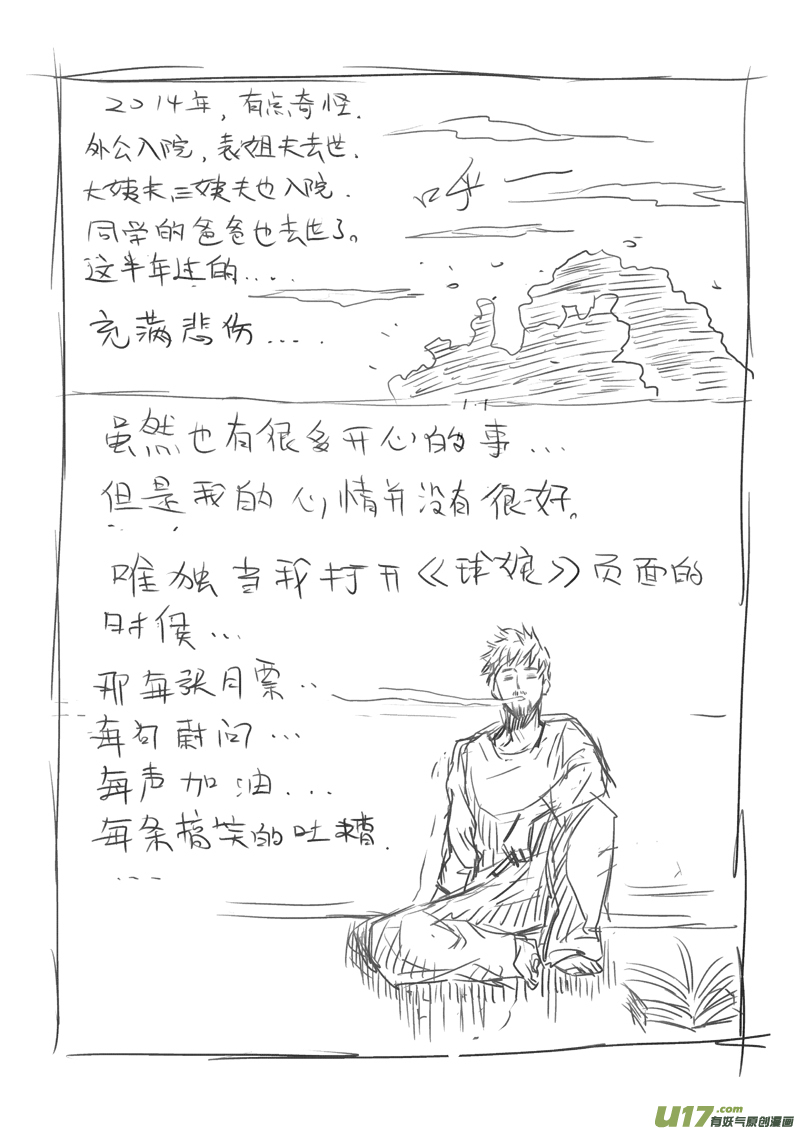 2014年，有点奇怪.
外公入院，表姐夫去世.
大姨夫,三姨夫也入院.
同学的爸爸也去世了。
这半年过的....
充满悲伤....
呼一
虽然也有很多开心的事...
但是我的心情并没有很好。
唯独当我打开《球娘》页面的
时候...
那每张月票..
每句慰问...
每声加油...
每条搞笑的吐槽.
....
U17.com
有妖气原创漫画